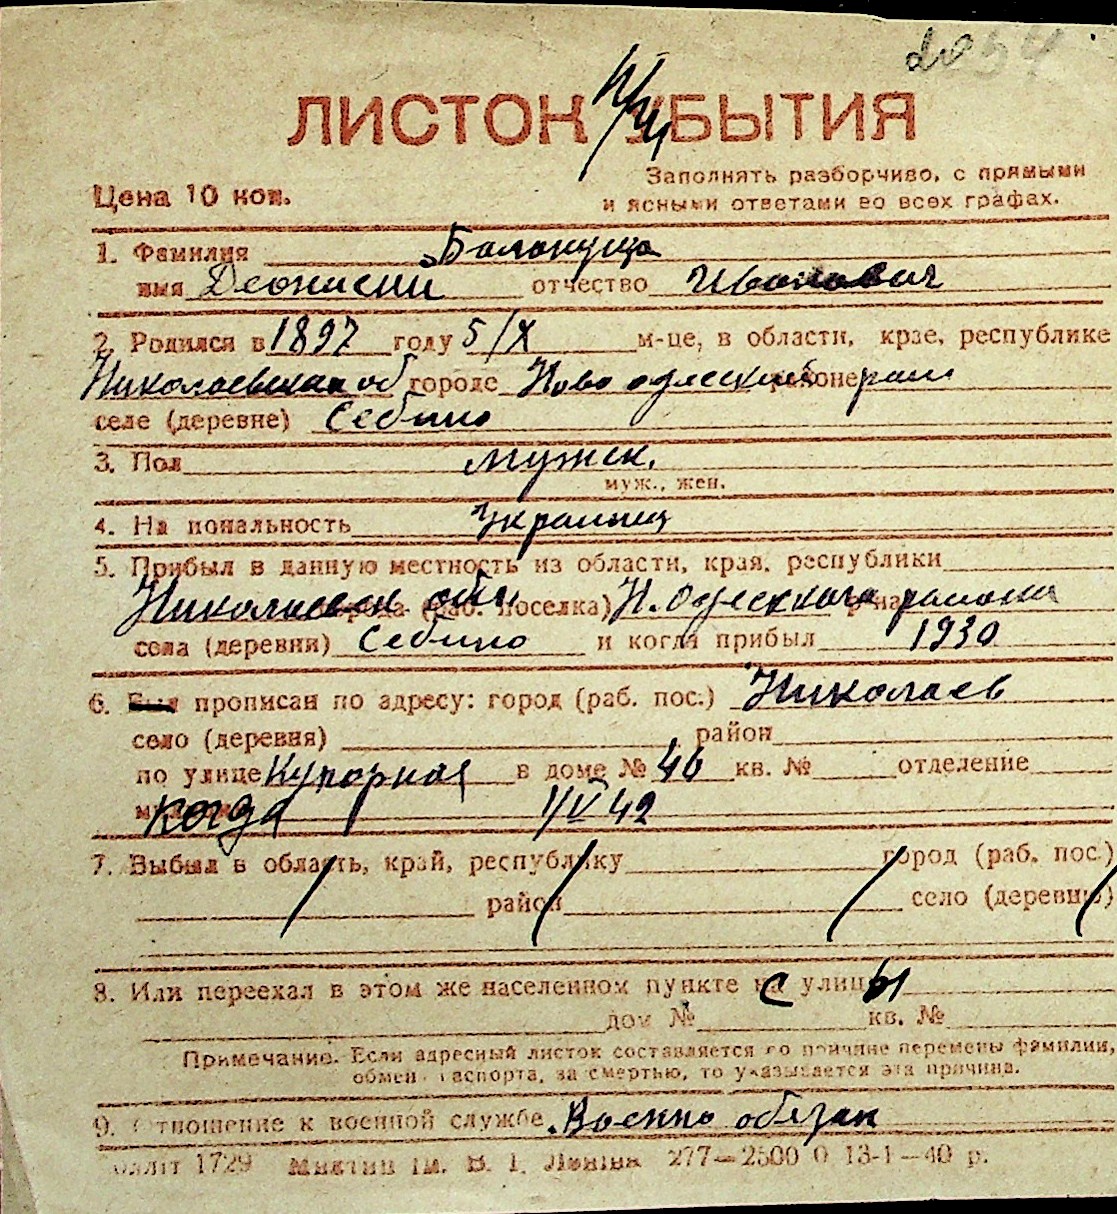 2054
ЛИСТОК УБЫТИЯ
Заполнять разборчиво, с прямыми
Цена 10 коп.
и ясными ответами во всех графах.
1. Фамилия Балануца
имя Деонисий отчество Иванович
2. Родился в 1897 году 5/X м-це, в области, крае, республике
Николаевская об городе Ново одесский районе
селе (деревне) Себино
3. Пол мужск.
муж., жен.
4. Национальность Украинец
5. Прибыл в данную местность из области, края, республики
Николаевск обл. города (раб. поселка) Н. Одесского района
села (деревни) Себино и когда прибыл 1930
6. Был прописан по адресу: город (раб. пос.) Николаев
село (деревня) район
по улице Купорная в доме № 46 кв. № отделение
когда 1/V 42
7. Выбыл в область, край, республику город (раб. пос.)
район село (деревню)
8. Или переехал в этом же населенном пункте с улицы
дом № кв. №
Примечание. Если адресный листок составляется по причине перемены фамилии,
обмен паспорта, за смертью, то указывается эта причина.
9. Отношение к военной службе Военно обязан
1729 ім. В. І. Леніна 277—2500 0 13-1—40 р.